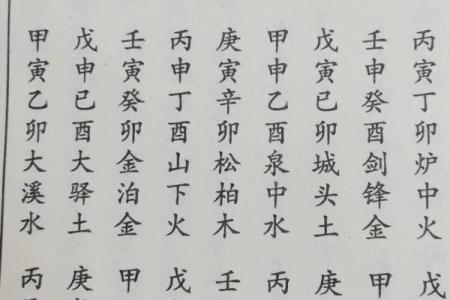 丙寅丁卯炉中火 戊
壬申癸酉剑锋金 甲
戊寅已卯城头土 庚
甲申乙酉泉中水 丙
庚寅辛卯松柏木 壬
丙申丁酉山下火 戊
壬寅癸卯金泊金 甲
戊申已酉大驿土 庚
甲寅乙卯大溪水 丙